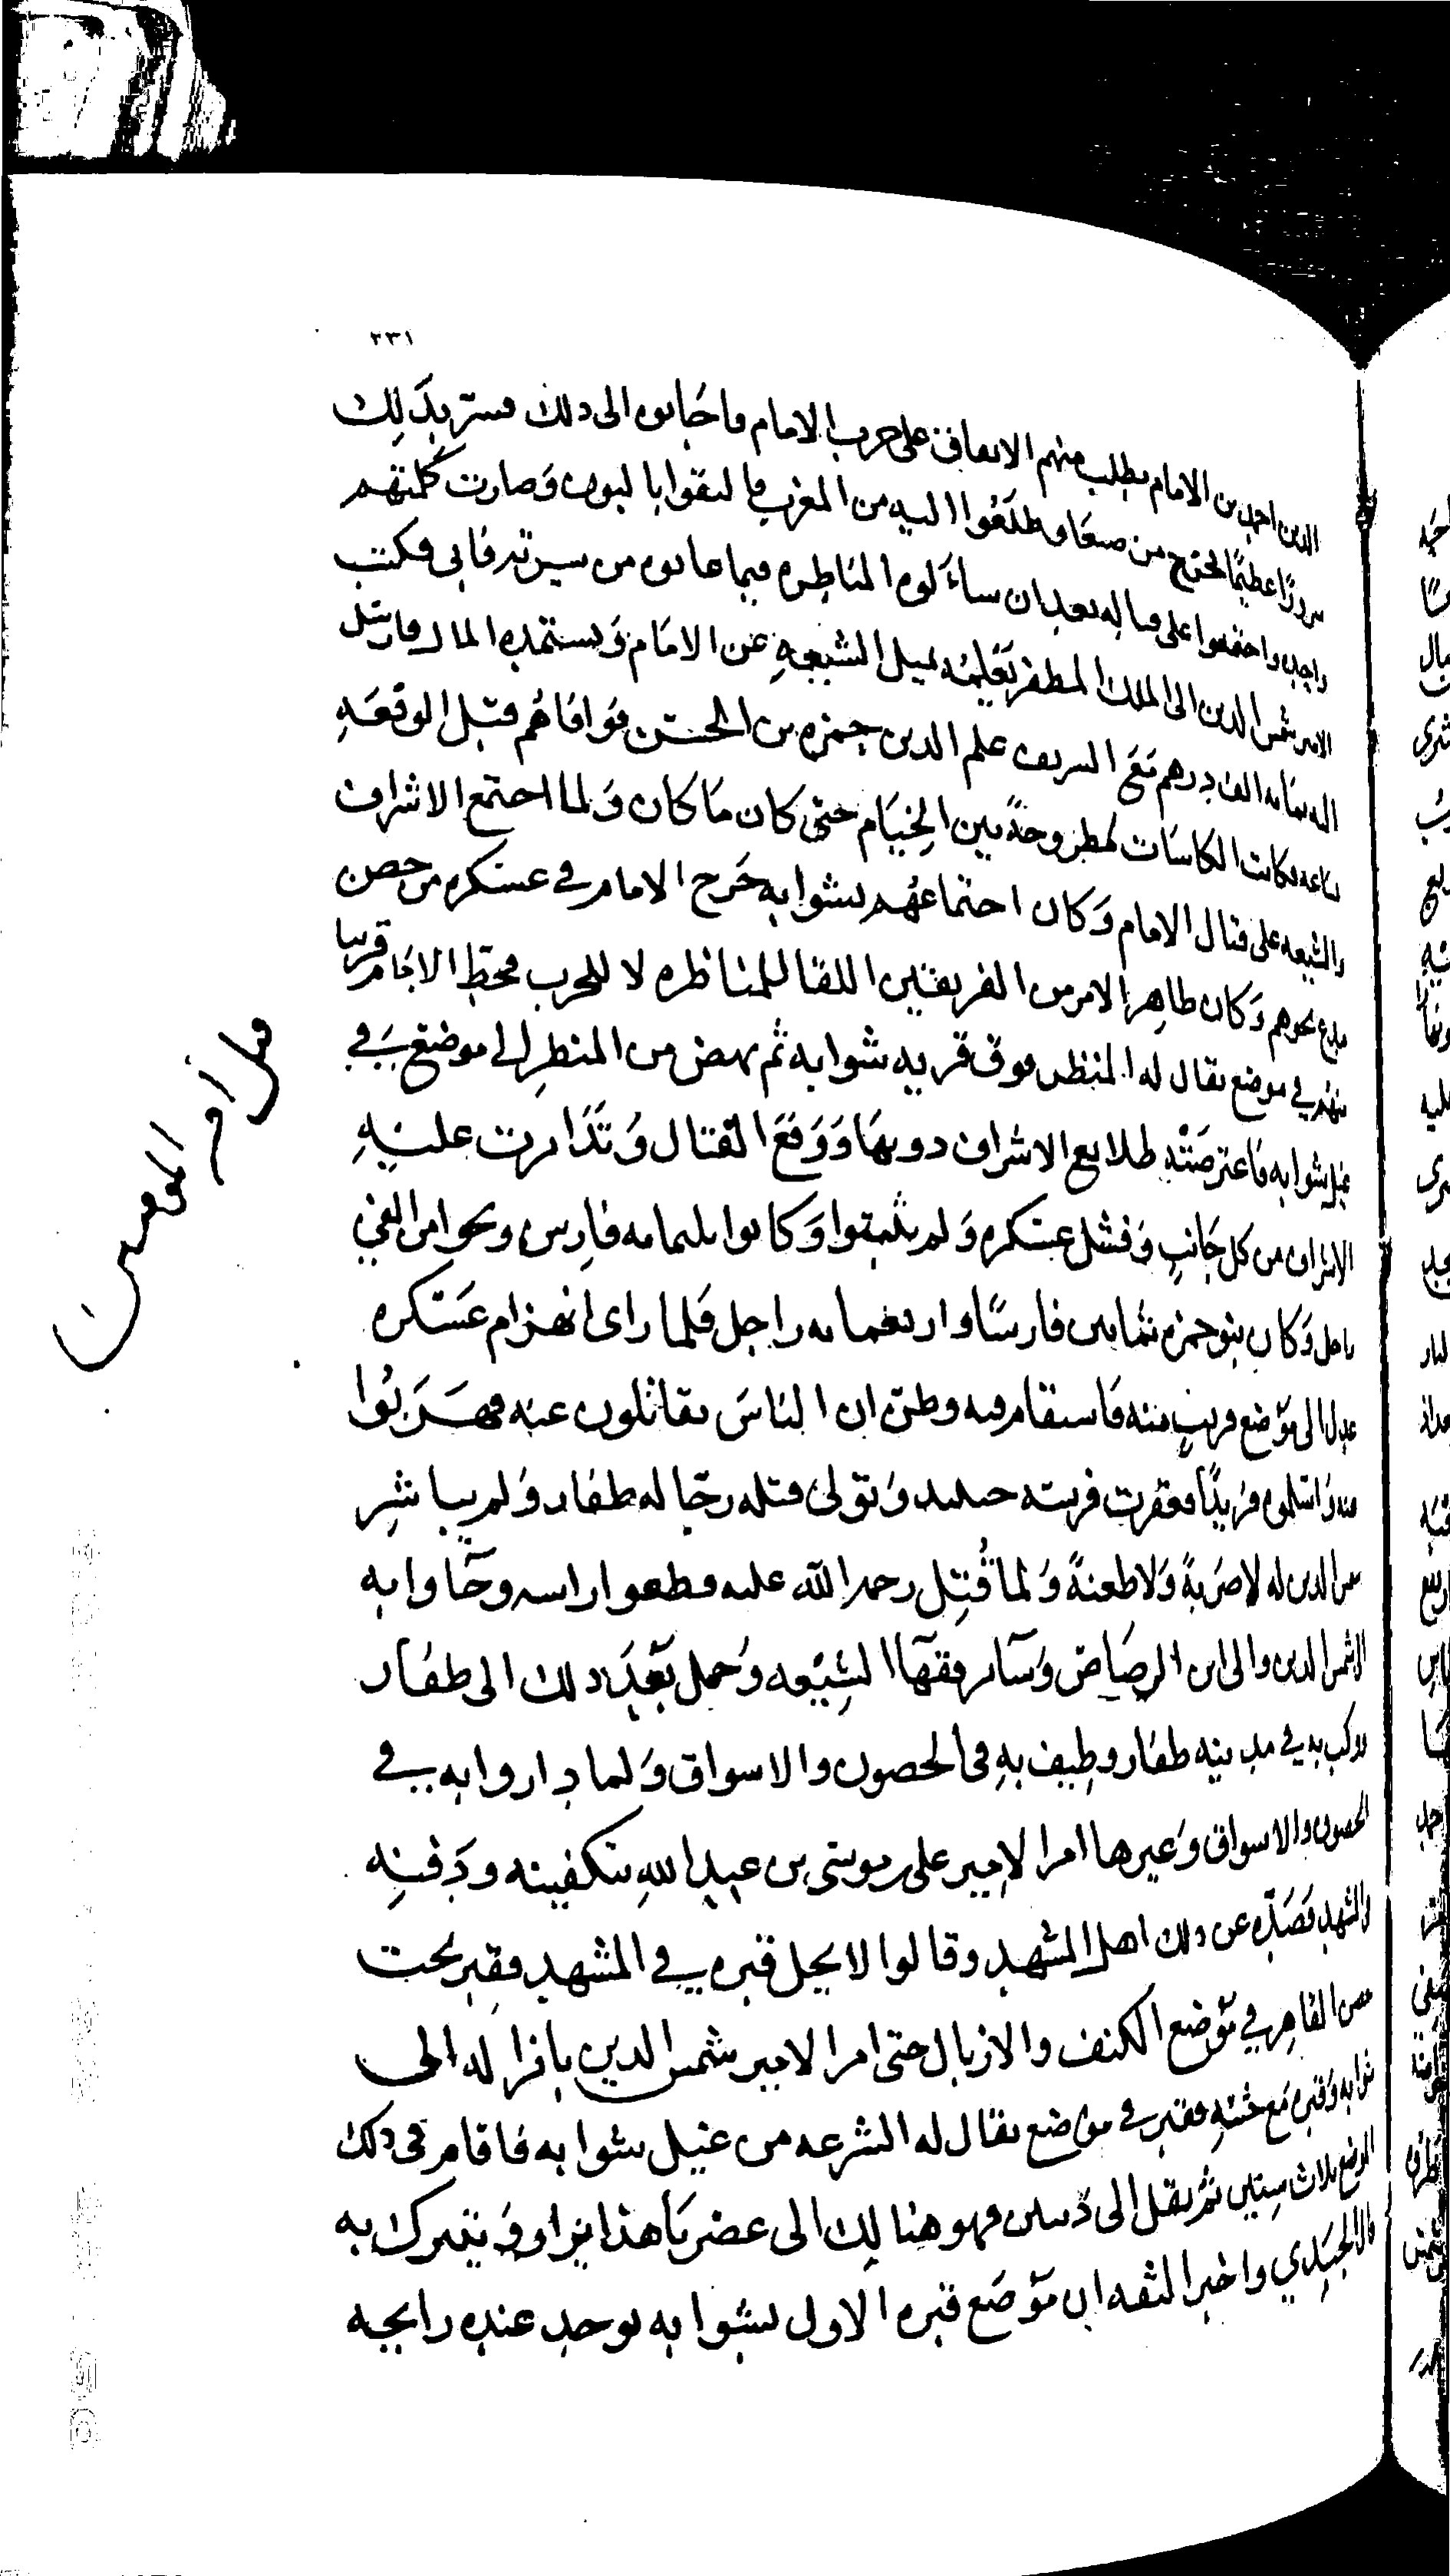 ٢٣١
الدين احمد بن الامام يطلب منهم الاتفاق على حرب الامام فاجابوه الى ذلك فسر بذلك
سرورًا عظيمًا فخرج من صنعا وطلعوا اليه من المغرب فالتقوا بالبون وصارت كلمتهم
واحده واجتمعوا على قتاله بعد ان سالوه المناظره فيما عابوه من سيرته فابى فكتب
الامير شمس الدين الى الملك المظفر يعلمه بميل الشيعه عن الامام ويستمده المال فارسل
اليه بمايه الف درهم مع الشريف علم الدين حمزه بن الحسن فوافاهم قبل الوقعه
بساعه فكانت الكاسات مطروحة بين الخيام حتى كان ما كان ولما اجتمع الاشراف
والشيعه على قتال الامام وكان اجتماعهم بشوابه خرج الامام في عسكره من حصن
مدع نحوهم وكان ظاهر الامر من الفريقين اللقا للمناظره لا للحرب فحط الامام قريبا
منهم في موضع يقال له المنظر فوق قريه شوابه ثم نهض من المنظر الى موضع في
غيل شوابه فاعترضته طلايع الاشراف دونها ووقع القتال وتذامرت عليه
الاشراف من كل جانب وفشل عسكره ولم يثبتوا وكانوا ثلثمايه فارس ونحوا من الفي
راجل وكان بنو حمزه ثمانين فارسًا واربعمايه راجل فلما راى انهزام عسكره
عدل الى موضع قريب منه فاستقام فيه وظن ان الناس يقاتلون عنه فهربوا
عنه واسلموه فريدًا فعقرت فرسه حينيذ وتولى قتله رجاله ظفار ولم يباشر
شمس الدين له لا ضربة ولا طعنة ولما قتل رحمه الله عليه قطعوا راسه وجاوا به
الى شمس الدين والى ابن الرصاص وساير فقها الشيعه وحمل بعد ذلك الى ظفار
فركب به في مدينه ظفار وطيف به في الحصون والاسواق ولما داروا به في
الحصون والاسواق وغيرها امر الامير على بن موسى بن عبد الله بتكفينه ودفنه
في المشهد فصده عن ذلك اهل المشهد وقالوا لا يحل قبره في المشهد فقبر تحت
حصن القاهر في موضع الكنف والازبال حتى امر الامير شمس الدين بانزاله الى
شوابه وقبره مع جثته فقبر في موضع يقال له الشرعه من غيل شوابه فاقام في ذلك
الموضع ثلاث سنين ثم نقل الى ذيبين فهو هنالك الى عصرنا هذا يزار ويتبرك به
قال الجندي واخبر الثقه ان موضع قبره الاول بشوابه يوجد عنده رايحه